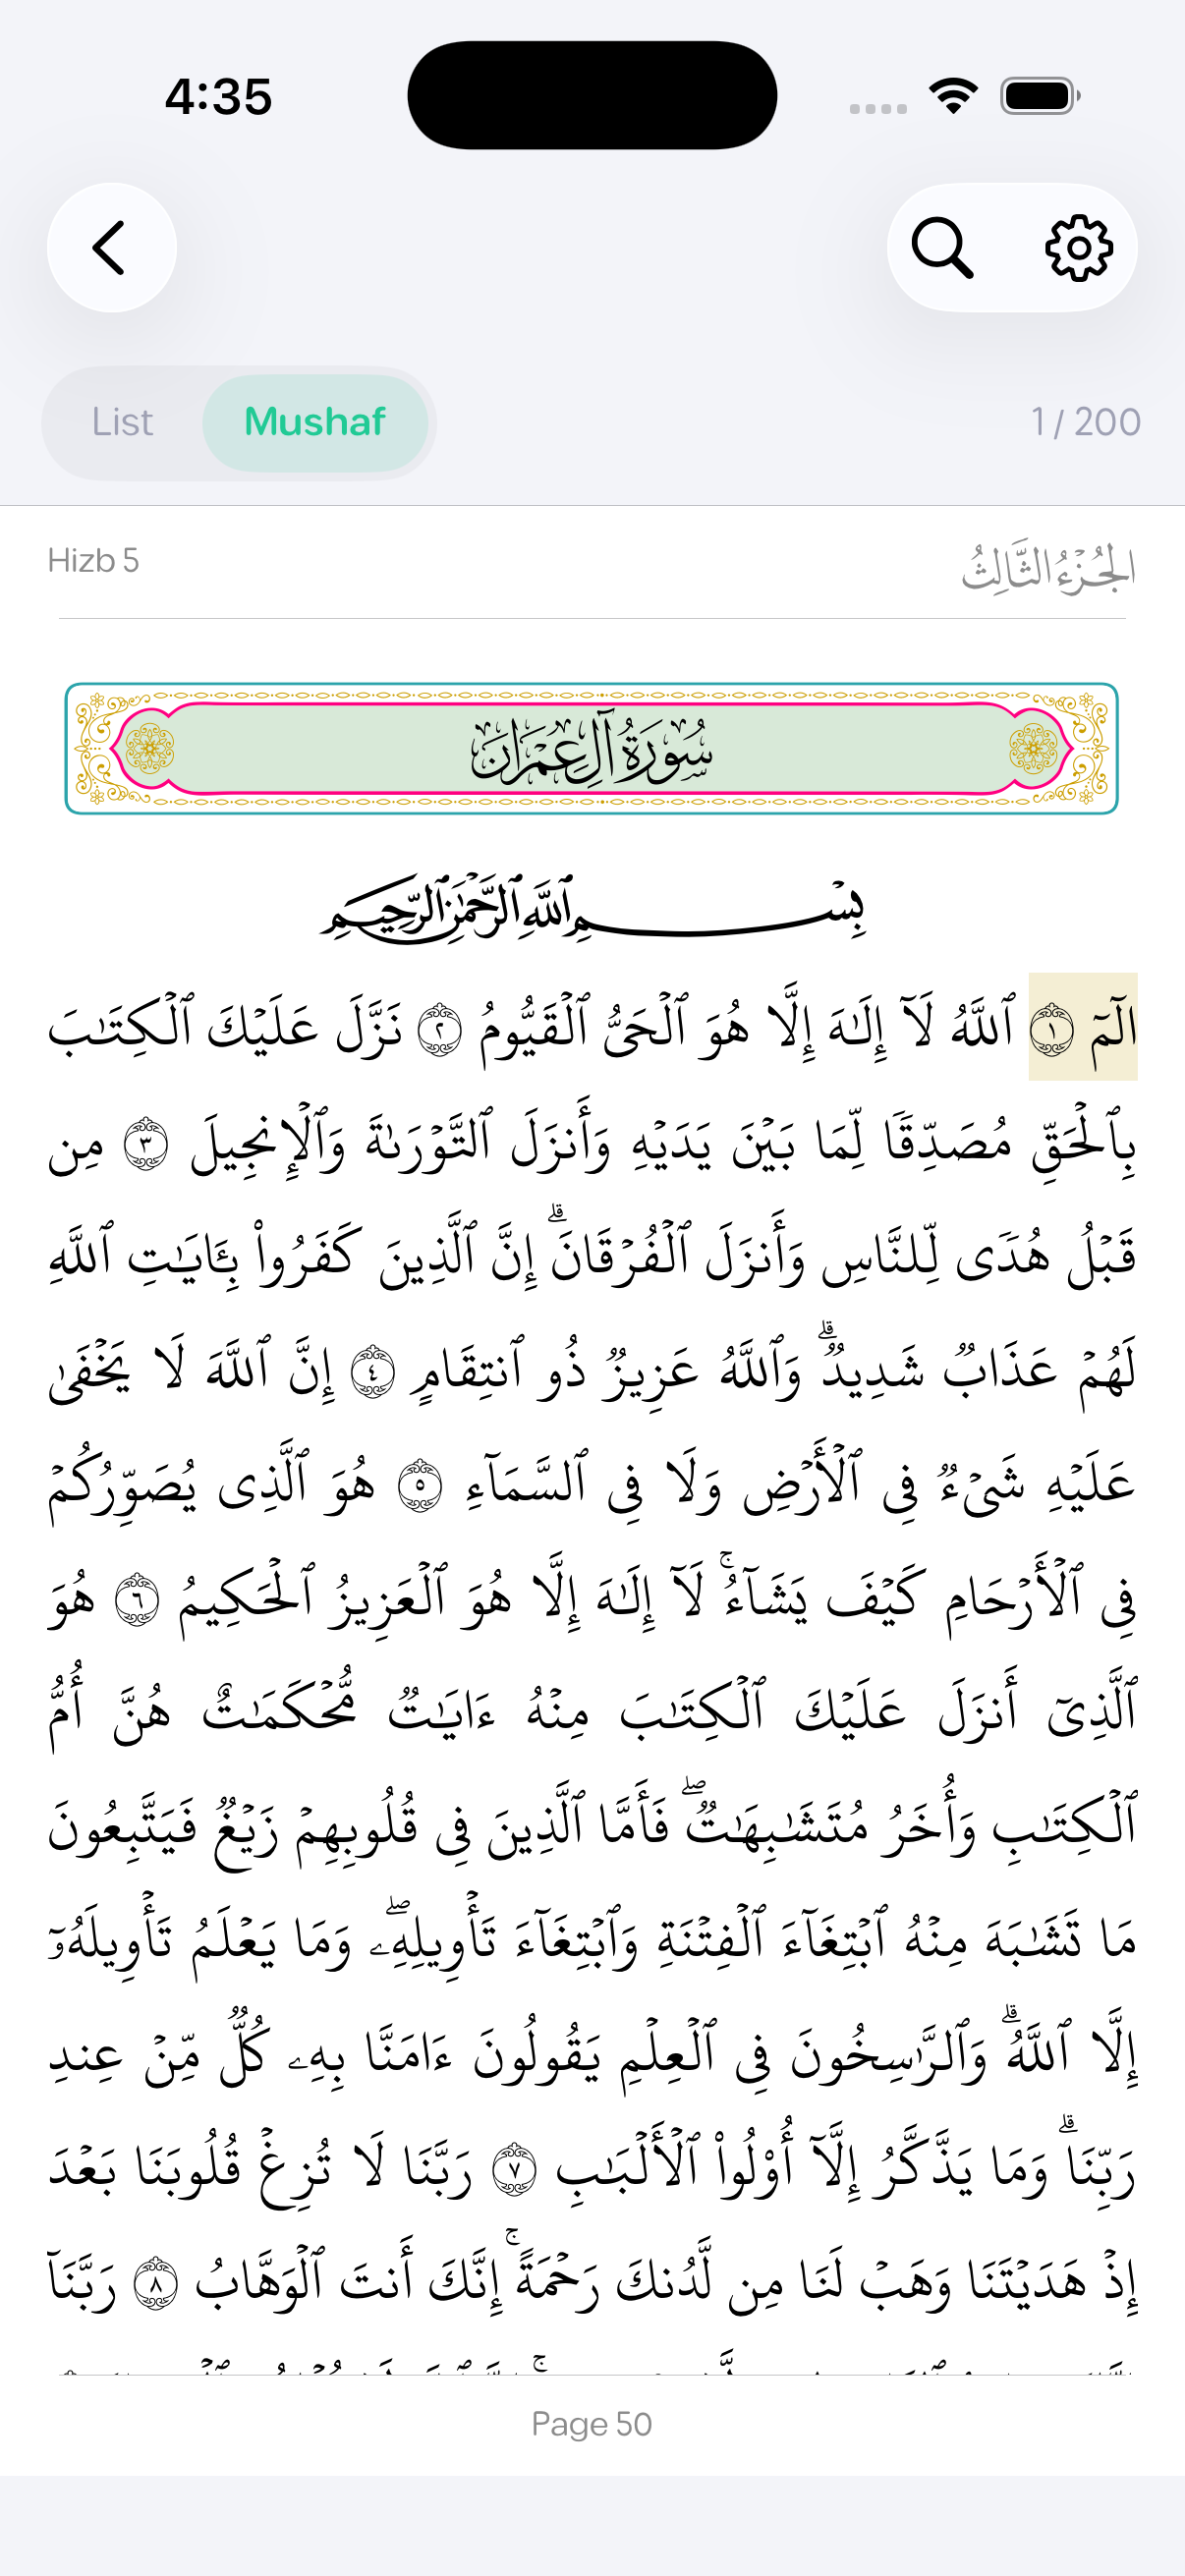 4:35
List
Mushaf
1 / 200
Hizb 5
الجُزْءُ الثَّالِثُ
سُورَةُ آلِ عِمْرَانَ
بِسْمِ ٱللَّهِ ٱلرَّحْمَٰنِ ٱلرَّحِيمِ
الٓمٓ ١ ٱللَّهُ لَآ إِلَٰهَ إِلَّا هُوَ ٱلْحَىُّ ٱلْقَيُّومُ ٢ نَزَّلَ عَلَيْكَ ٱلْكِتَٰبَ
بِٱلْحَقِّ مُصَدِّقًا لِّمَا بَيْنَ يَدَيْهِ وَأَنزَلَ ٱلتَّوْرَىٰةَ وَٱلْإِنجِيلَ ٣ مِن
قَبْلُ هُدًى لِّلنَّاسِ وَأَنزَلَ ٱلْفُرْقَانَ ۗ إِنَّ ٱلَّذِينَ كَفَرُوا۟ بِـَٔايَٰتِ ٱللَّهِ
لَهُمْ عَذَابٌ شَدِيدٌ ۗ وَٱللَّهُ عَزِيزٌ ذُو ٱنتِقَامٍ ٤ إِنَّ ٱللَّهَ لَا يَخْفَىٰ
عَلَيْهِ شَىْءٌ فِى ٱلْأَرْضِ وَلَا فِى ٱلسَّمَآءِ ٥ هُوَ ٱلَّذِى يُصَوِّرُكُمْ
فِى ٱلْأَرْحَامِ كَيْفَ يَشَآءُ ۚ لَآ إِلَٰهَ إِلَّا هُوَ ٱلْعَزِيزُ ٱلْحَكِيمُ ٦ هُوَ
ٱلَّذِىٓ أَنزَلَ عَلَيْكَ ٱلْكِتَٰبَ مِنْهُ ءَايَٰتٌ مُّحْكَمَٰتٌ هُنَّ أُمُّ
ٱلْكِتَٰبِ وَأُخَرُ مُتَشَٰبِهَٰتٌ ۖ فَأَمَّا ٱلَّذِينَ فِى قُلُوبِهِمْ زَيْغٌ فَيَتَّبِعُونَ
مَا تَشَٰبَهَ مِنْهُ ٱبْتِغَآءَ ٱلْفِتْنَةِ وَٱبْتِغَآءَ تَأْوِيلِهِۦ ۖ وَمَا يَعْلَمُ تَأْوِيلَهُۥٓ
إِلَّا ٱللَّهُ ۗ وَٱلرَّٰسِخُونَ فِى ٱلْعِلْمِ يَقُولُونَ ءَامَنَّا بِهِۦ كُلٌّ مِّنْ عِندِ
رَبِّنَا ۗ وَمَا يَذَّكَّرُ إِلَّآ أُو۟لُوا۟ ٱلْأَلْبَٰبِ ٧ رَبَّنَا لَا تُزِغْ قُلُوبَنَا بَعْدَ
إِذْ هَدَيْتَنَا وَهَبْ لَنَا مِن لَّدُنكَ رَحْمَةً ۚ إِنَّكَ أَنتَ ٱلْوَهَّابُ ٨ رَبَّنَآ
Page 50